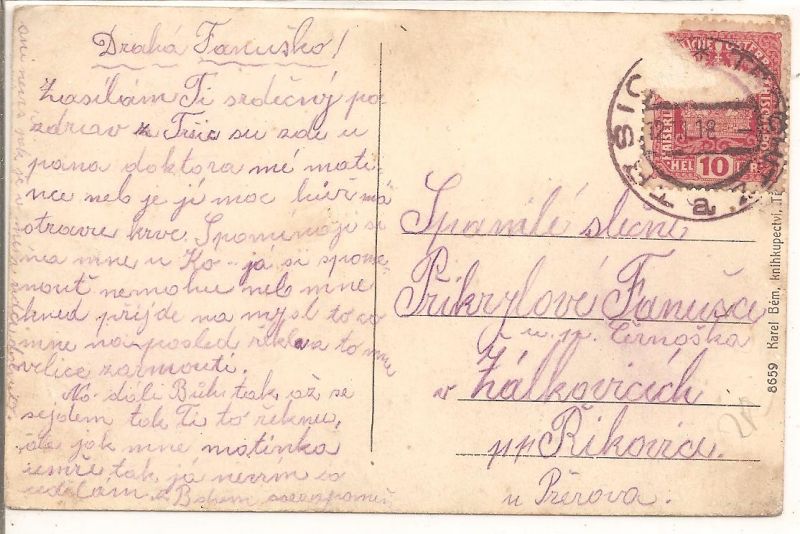 Drahá Fanuško!
Zasílám Ti srdečný po
zdrav z Tršic su zde u
pana doktora mé mati
nce neb je jí moc hůř má
otravu krve. Spomínají si
na mne u Ko- já si spome
nout nemohu neb mne
hned přijde na mysl to co
mne na posled řekla to mne
velice zarmoutí.
No dáli Bůh tak až se
sejdem tak Ti to řeknu,
ale jak mne matinka
umře tak já nevím co
udělám s Bohem
Spanilé slečně
Přikrylové Fanušce
u. p. Černoška
v Zálkovicích
pp Řikovice
u Přerova.
TRŠICE
TRSCHITZ
a
18
KAISERL
ÖSTERR
10
HEL
8659 Karel Bém, knihkupectví,